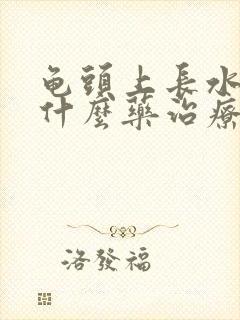 龟頭上長水
什麼藥治療
洛發福